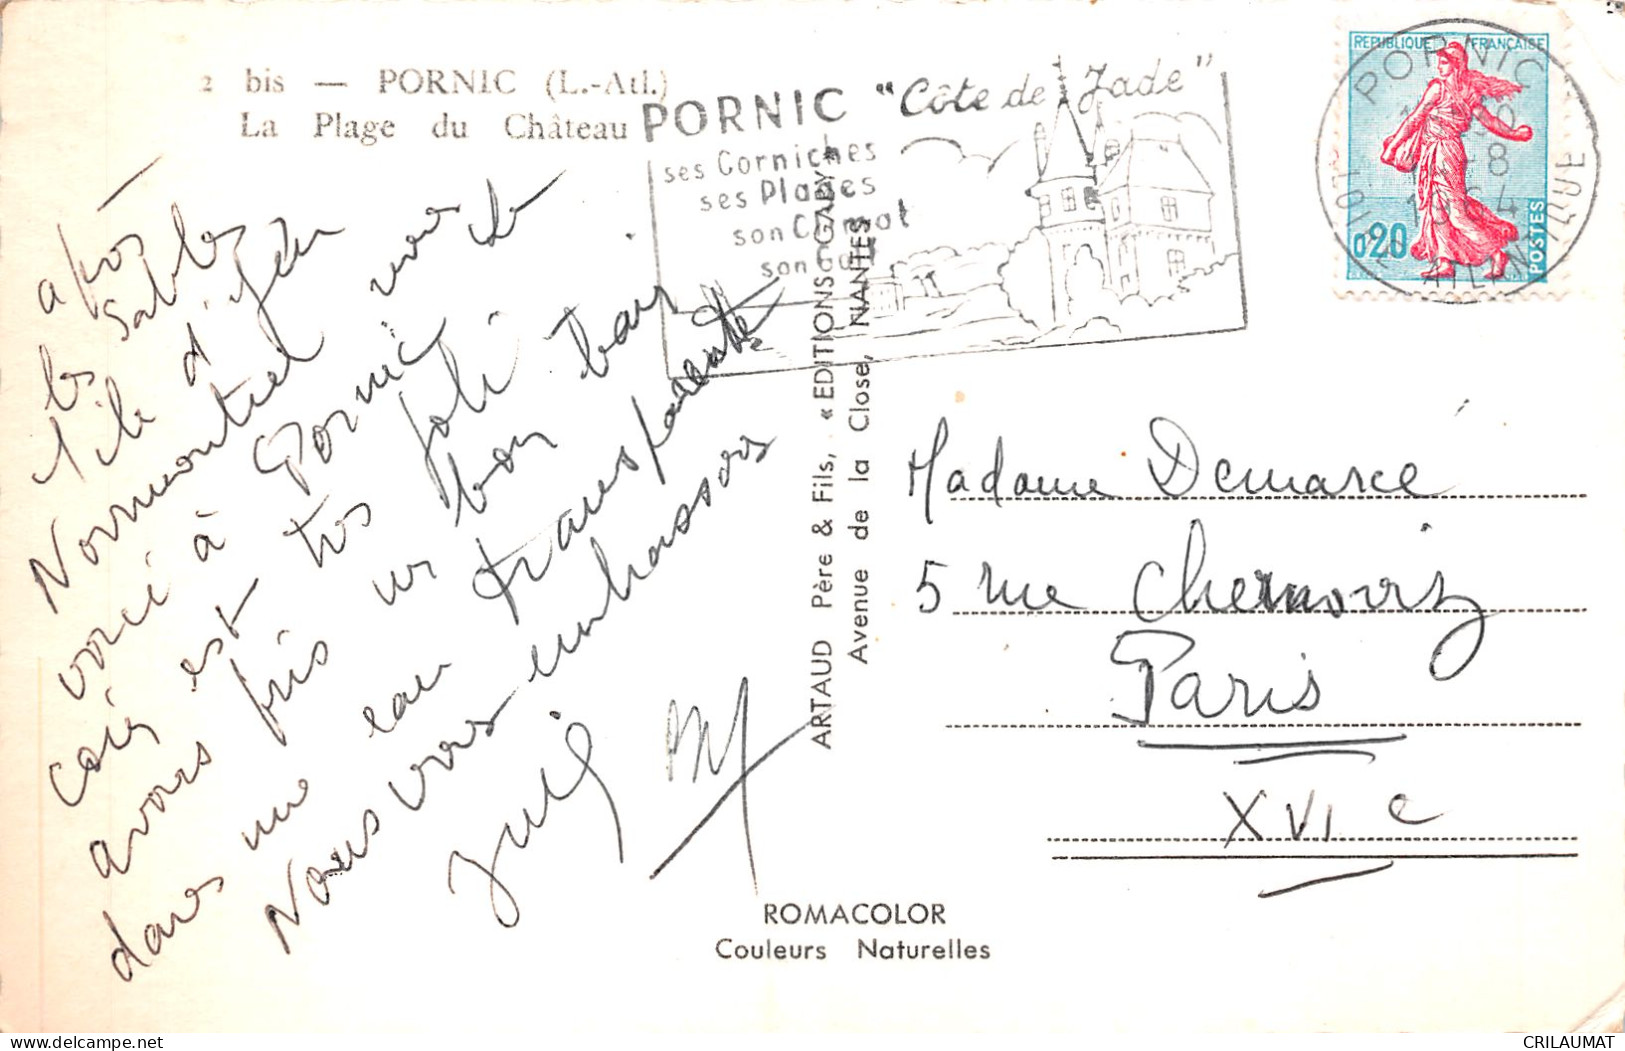 2 bis — PORNIC (L.-Atl.)
La Plage du Château
PORNIC "Côte de Jade"
ses Corniches
ses Plages
son Casino
son Golf
REPUBLIQUE FRANÇAISE
0,20
POSTES
PORNIC
-8
1964
LOIRE ATLANTIQUE
après
les Sables
l'ile d'Yeu
Normoutiel nous
voici à Pornic le
coin est très joli
avons pris un bon bain
dans une eau transparente
Nous vous embrassons
ARTAUD Père & Fils, « EDITIONS GABY »
Avenue de la Close, NANTES
Madame Demarcé
5 rue Chernoviz
Paris
XVI e
ROMACOLOR
Couleurs Naturelles
CRILAUMAT